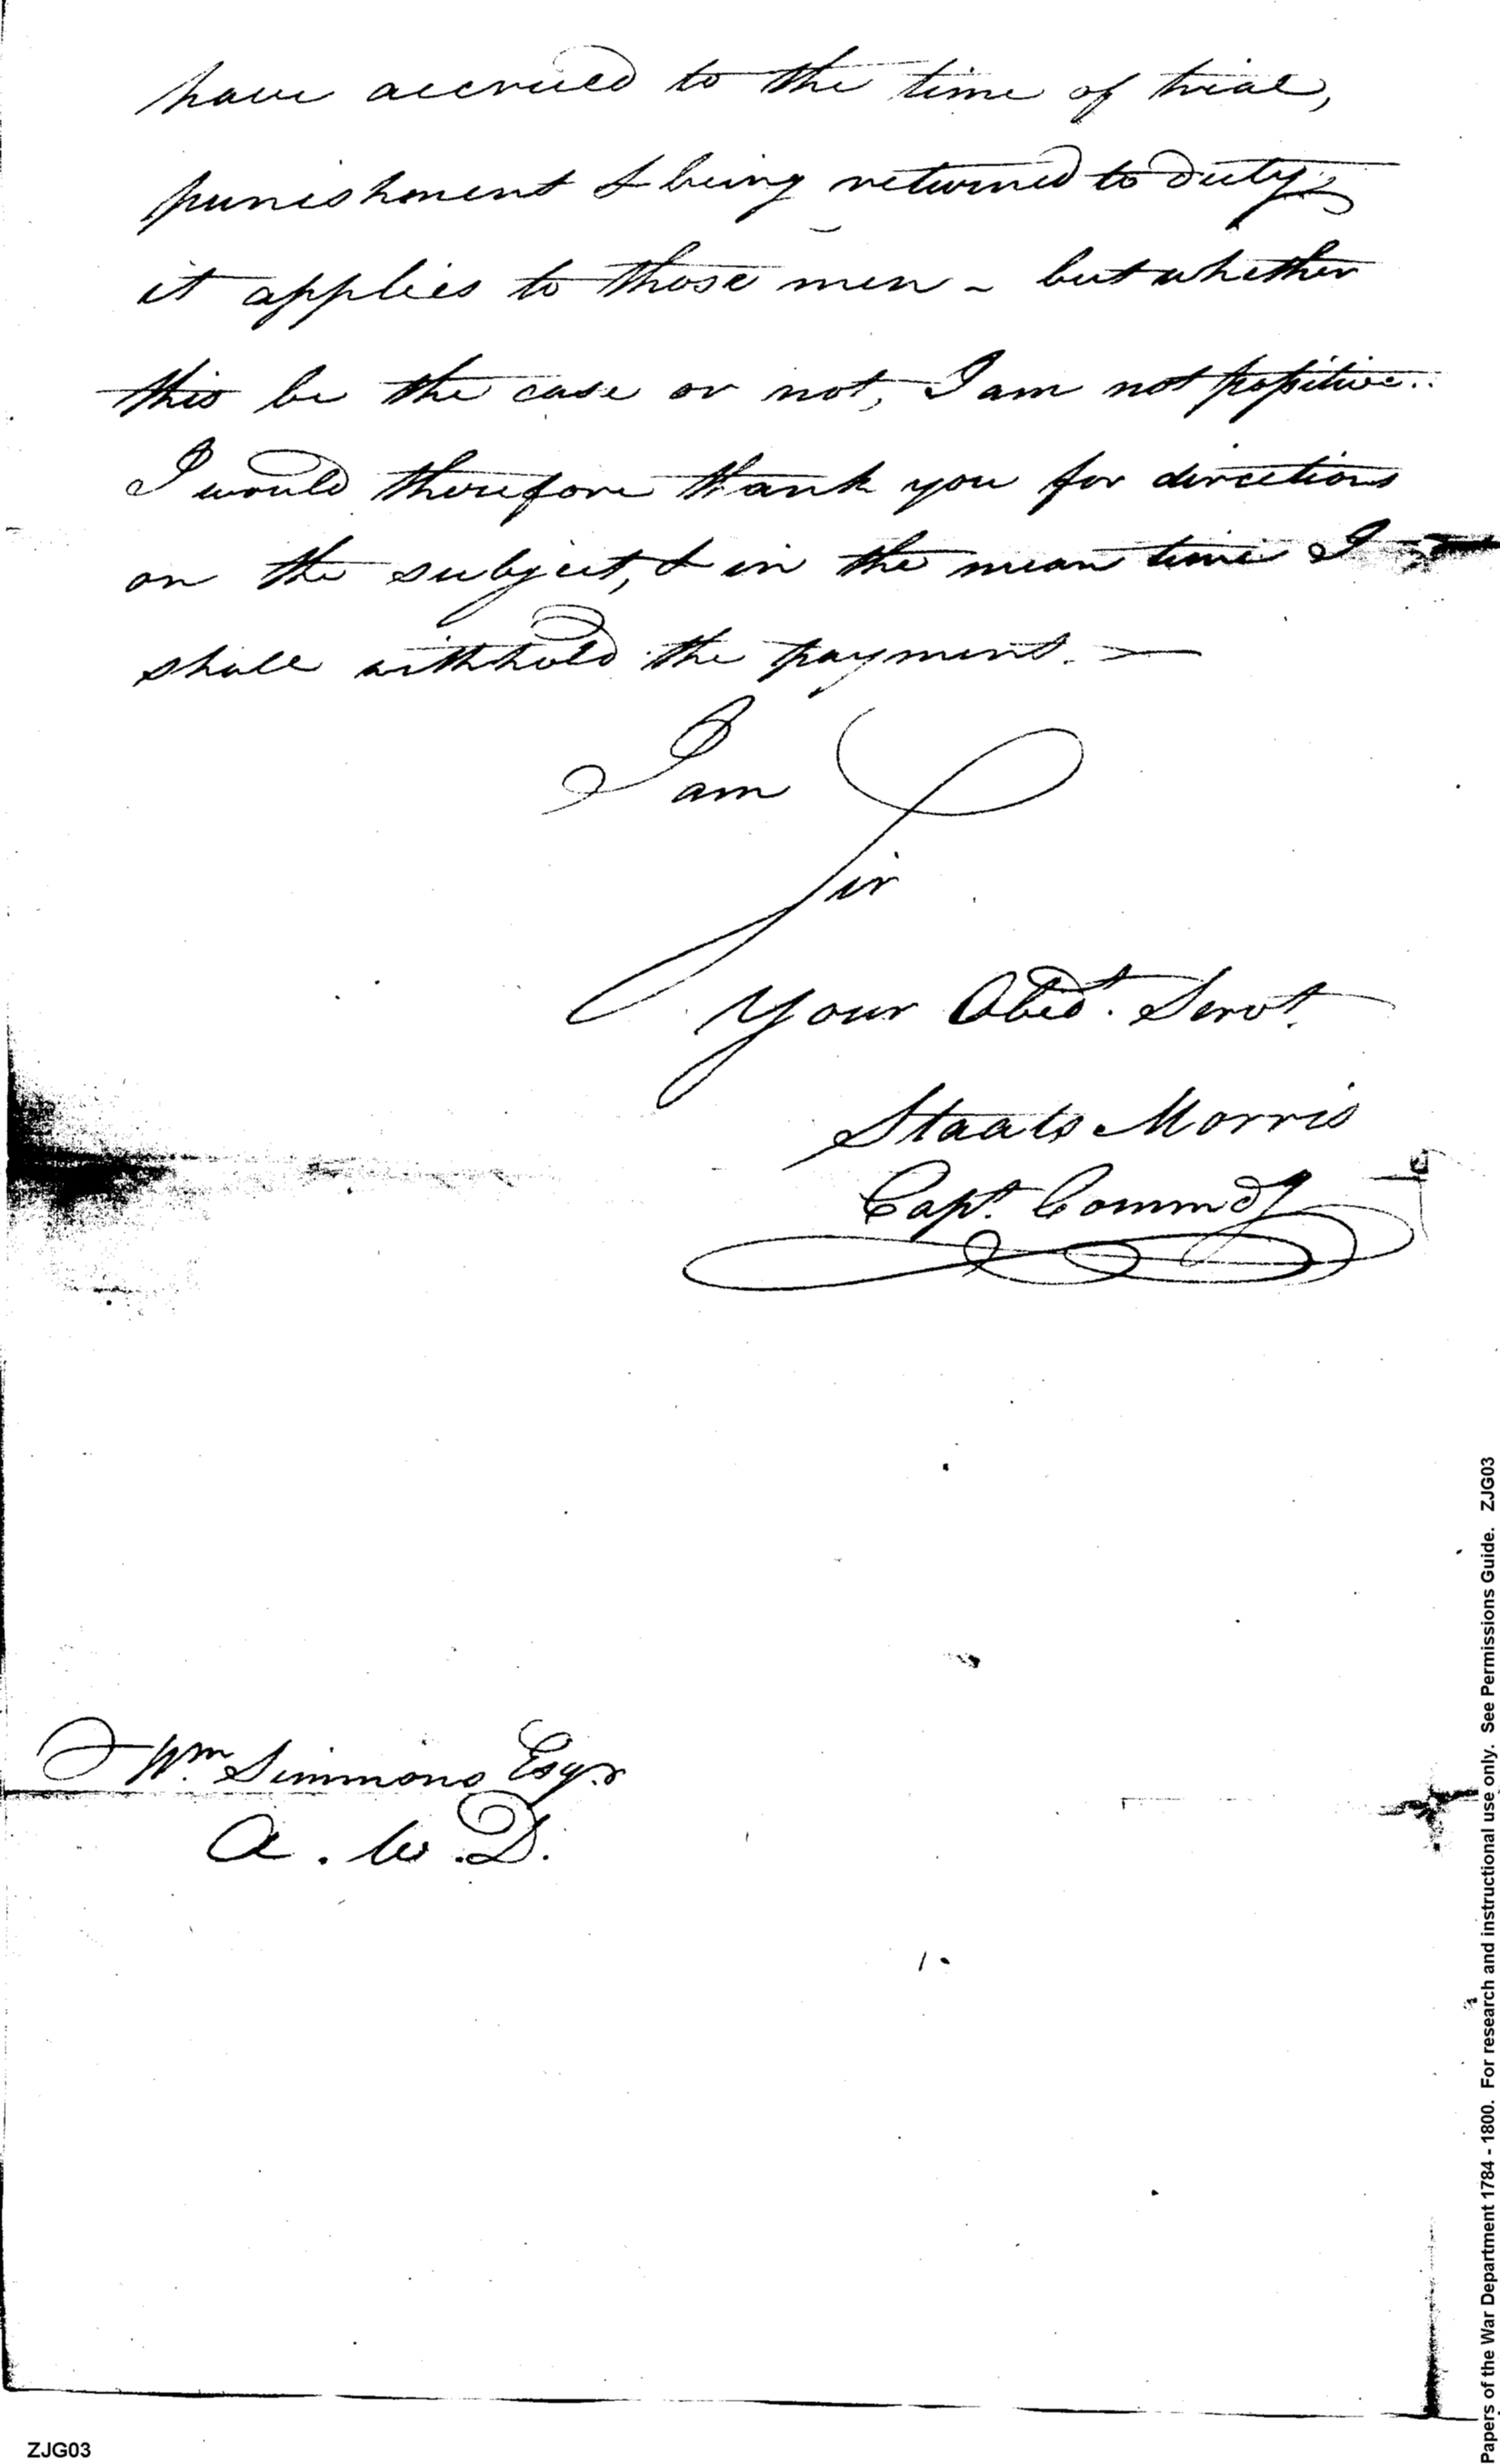 have accrued to the time of trial,
punishment & being returned to duty,
it applies to those men - but whether
this be the case or not, I am not possitive..
I would therefore thank you for directions
on the subject, & in the mean time I
shall withhold the payment. —
I am
Sir
Your Obed.t Servt.
Staats Morris
Capt. Commdg
Wm. Simmons Esqr
A. W. D.
Papers of the War Department 1784 - 1800. For research and instructional use only. See Permissions Guide. ZJG03
ZJG03